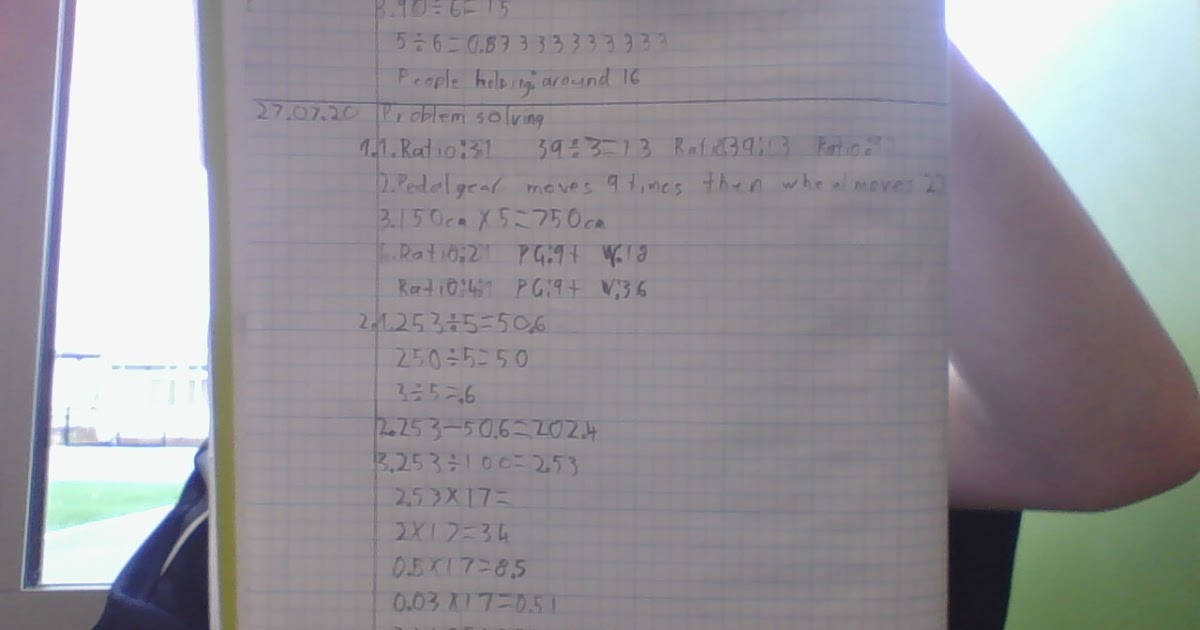 3.90÷6=15
5÷6=0.83333333333
People helping around 16
27.07.20 Problem solving
1.1.Ratio:3:1 39÷3=13 Ratio:39:13
2.Pedal gear moves 9 times then wheel moves 27
3.150cm×5=750cm
Ratio:2:1 PG:9t W:18
Ratio:4:1 PG:9t W:36
2.1.253÷5=50.6
250÷5=50
3÷5=.6
2.253-50.6=202.4
3.253÷100=2.53
2.53×17=
2×17=34
0.5×17=8.5
0.03×17=0.51